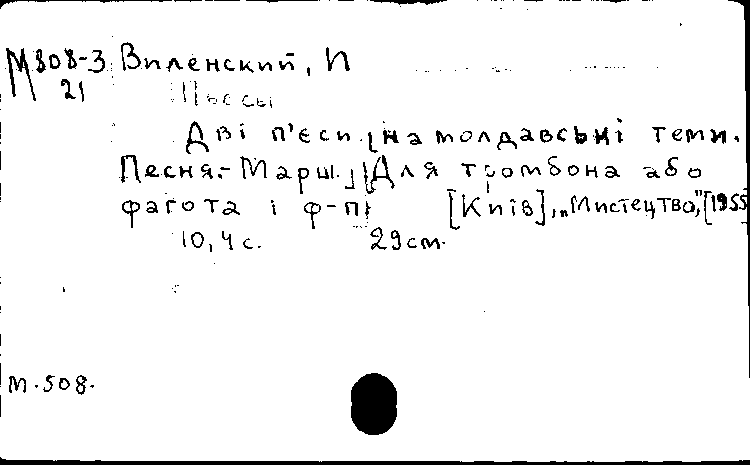 М308-3 Виленский, И
21 Пьесы
Дві п'єси на молдавські теми.
Песня.- Марш. Для тромбона або
фагота і ф-п [Київ], „Мистецтво," [1955
10,4 с. 29см.
м.508.